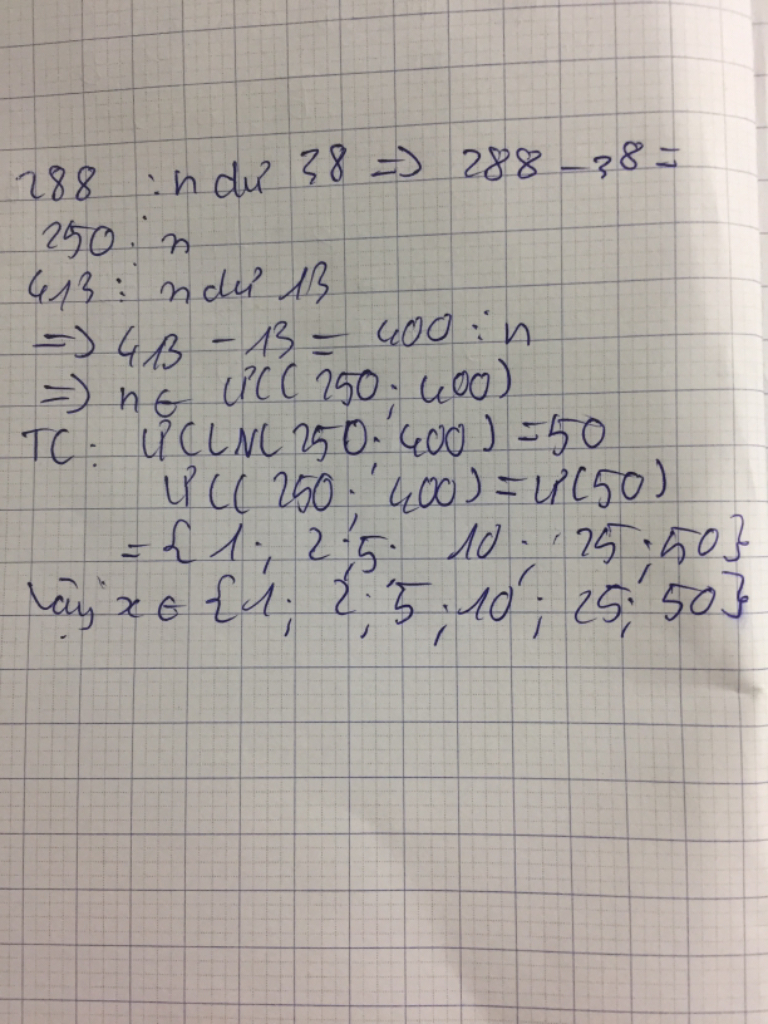 288 : n dư 38 => 288 - 38 =
250 ⋮ n
413 : n dư 13
=> 413 - 13 = 400 ⋮ n
=> n ∈ ƯC( 250 ; 400)
TC: ƯCLN( 250 ; 400) = 50
ƯC( 250 ; 400) = Ư(50)
= { 1 ; 2 ; 5 ; 10 ; 25 ; 50}
Vậy x ∈ {1 ; 2 ; 5 ; 10 ; 25 ; 50}